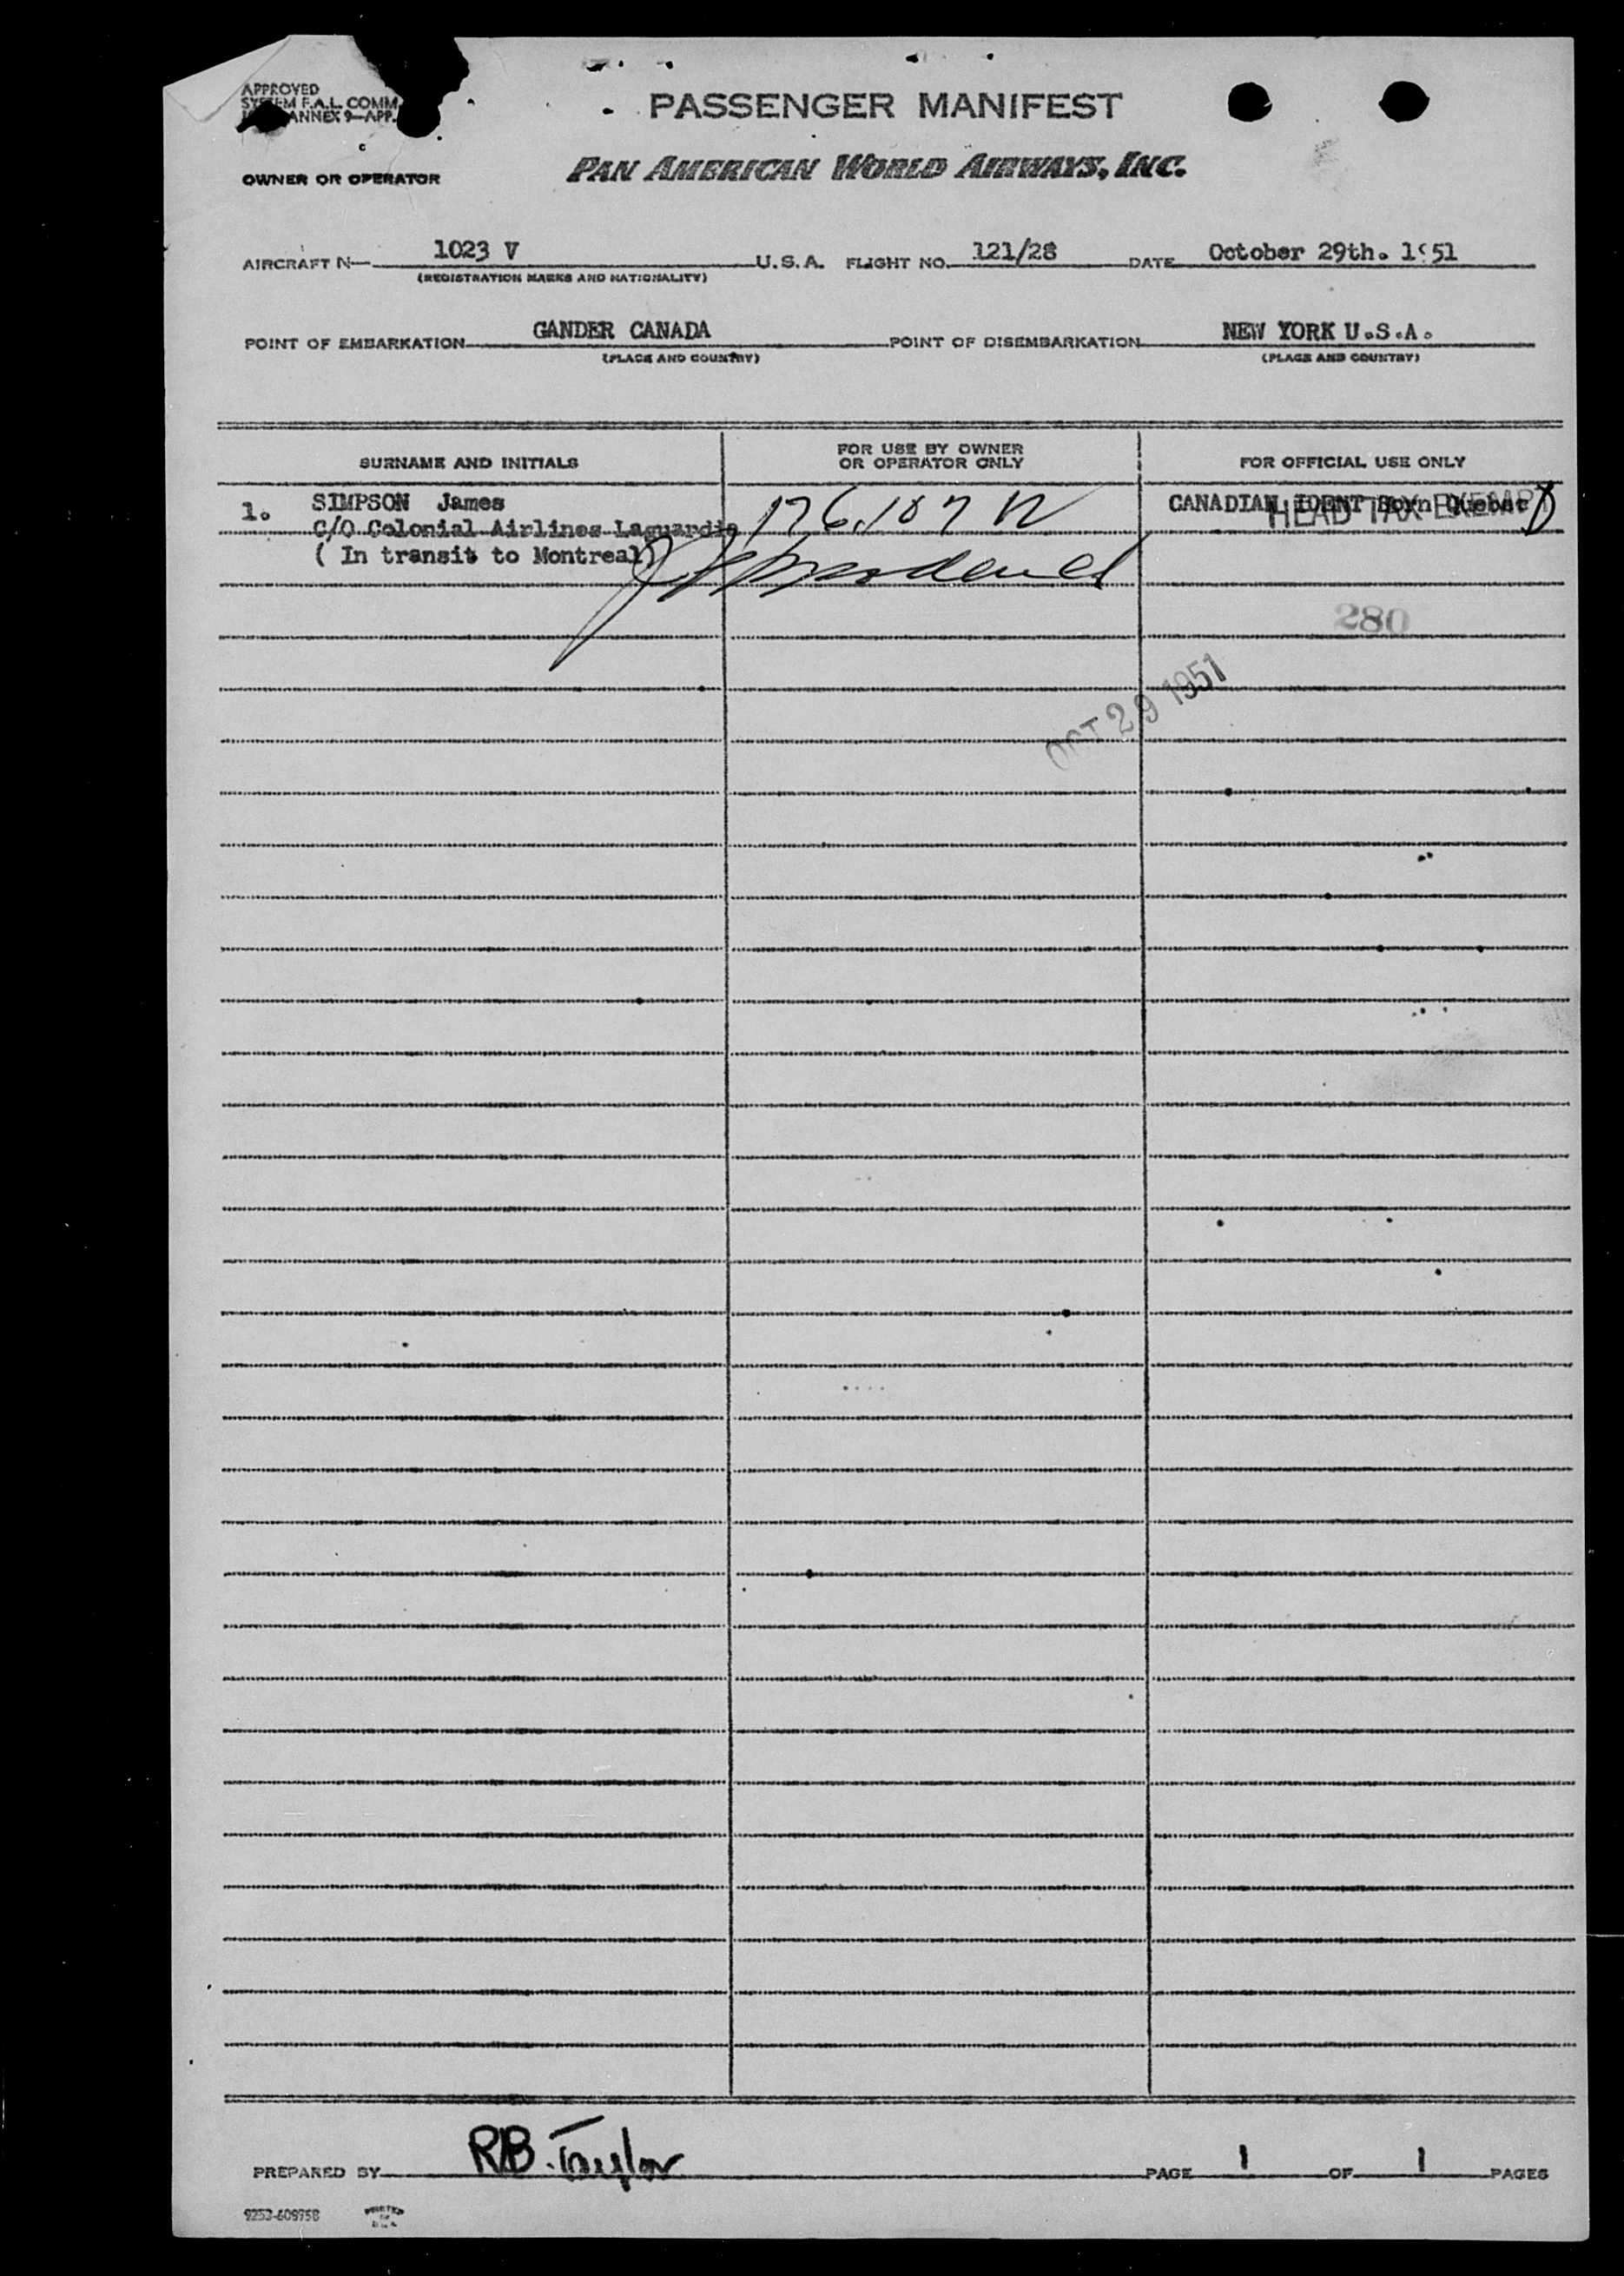 APPROVED
SYSTEM F.A.L. COMM.
ANNEX 9—APP.
PASSENGER MANIFEST
OWNER OR OPERATOR
PAN AMERICAN WORLD AIRWAYS, INC.
AIRCRAFT N— 1023 V U.S.A. FLIGHT NO. 121/28 DATE October 29th. 1951
(REGISTRATION MARKS AND NATIONALITY)
POINT OF EMBARKATION GANDER CANADA POINT OF DISEMBARKATION NEW YORK U.S.A.
(PLACE AND COUNTRY) (PLACE AND COUNTRY)
SURNAME AND INITIALS FOR USE BY OWNER OR OPERATOR ONLY FOR OFFICIAL USE ONLY
1. SIMPSON James CANADIAN IDENT Born Quebec
HEAD TAX EXEMPT
C/O Colonial Airlines Laguardia
( In transit to Montreal)
280
OCT 29 1951
PREPARED BY RB. Taylor PAGE 1 OF 1 PAGES
9253-609758 PRINTED IN U.S.A.